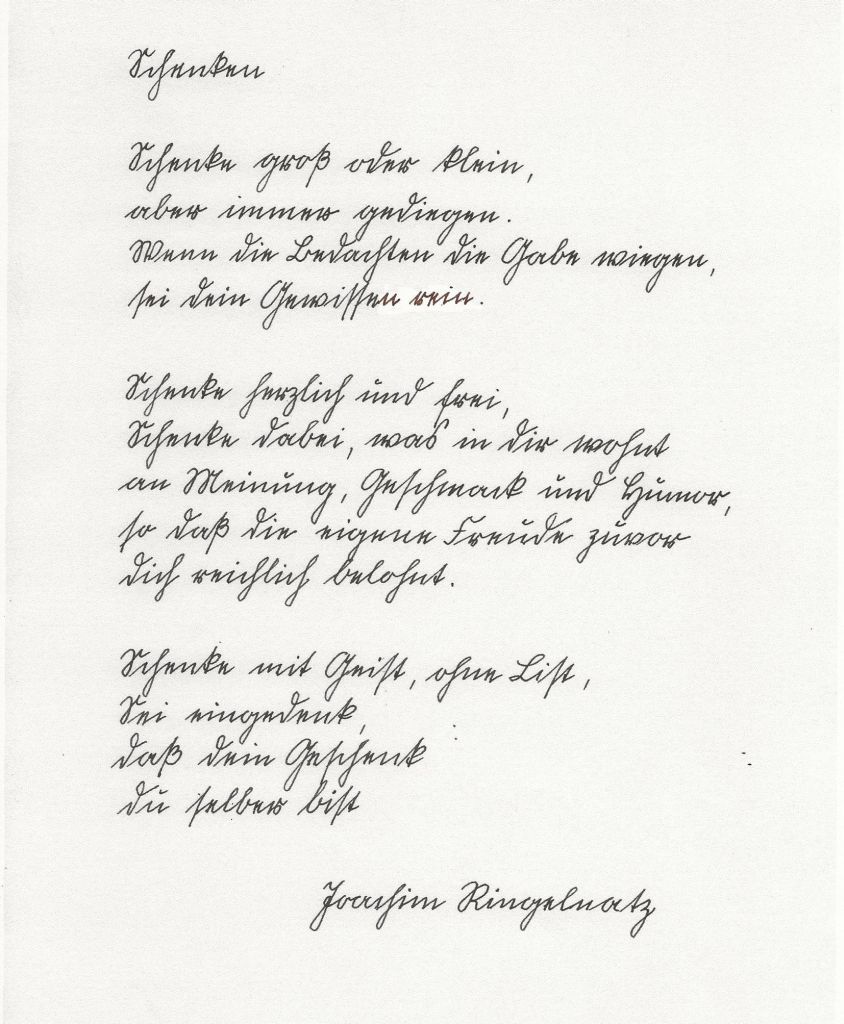 Schenken
Schenke groß oder klein,
aber immer gediegen.
Wenn die Bedachten die Gabe wiegen,
sei dein Gewissen rein.
Schenke herzlich und frei,
Schenke dabei, was in dir wohnt
an Meinung, Geschmack und Humor,
so daß die eigene Freude zuvor
dich reichlich belohnt.
Schenke mit Geist, ohne List,
Sei eingedenk,
daß dein Geschenk
du selber bist
Joachim Ringelnatz